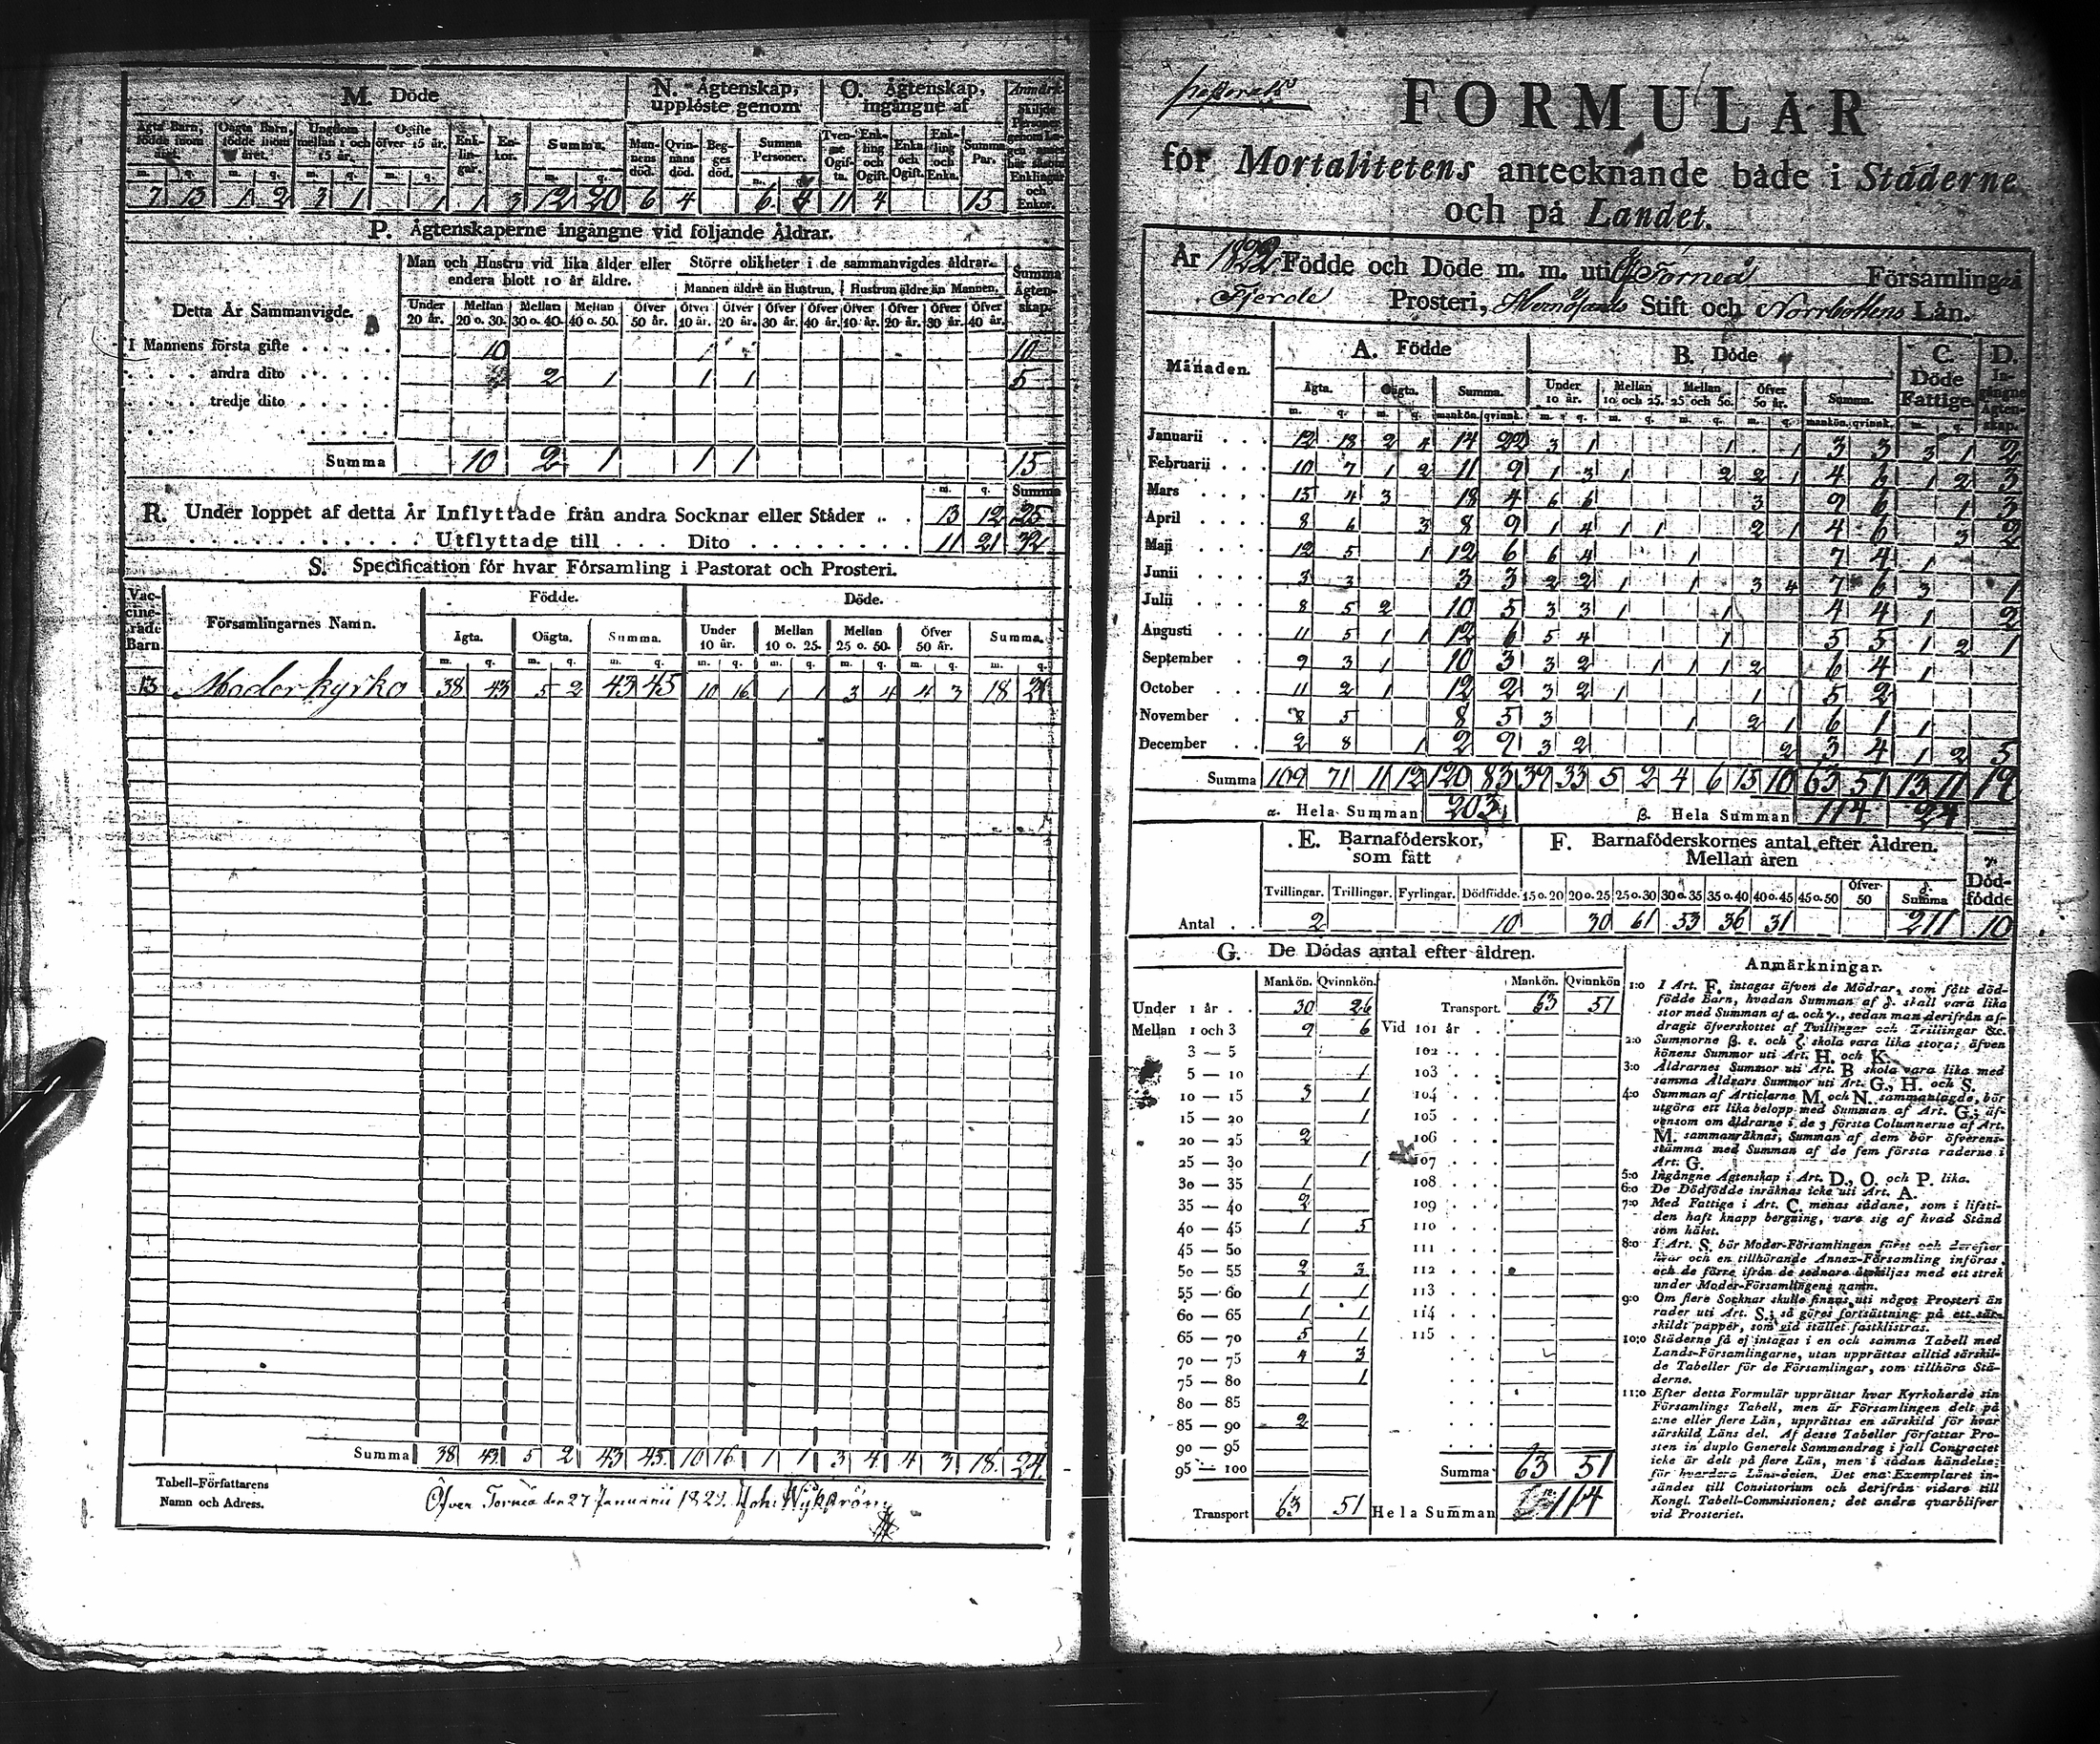 M. Döde
N. Ägtenskap, upplöste genom
O. Ägtenskap, ingångne af
Anmärk.
Ägta Barn, födde inom året.
Oägta Barn, födde inom året.
Ungdom mellan 1 och 15 år.
Ogifte öfver 15 år.
Enklingar.
Enkor.
Summa.
Mannens död.
Qvinnans död.
Begges död.
Summa Personer.
Tvenne Ogifta.
Enkling och Ogift.
Enka och Ogift.
Enkling och Enka.
Summa Par.
7 13 1 2 3 1 1 1 3 12 20 6 4 6 4 11 4 15
P. Ägtenskaperne ingångne vid följande Åldrar.
Detta År Sammanvigde.
Man och Hustru vid lika ålder eller endera blott 10 år äldre.
Större olikheter i de sammanvigdes åldrar.
Summa Ägtenskap.
Mannen äldre än Hustrun. Hustrun äldre än Mannen.
Under 20 år. Mellan 20 o. 30. Mellan 30 o. 40. Mellan 40 o. 50. Öfver 50 år. Öfver 10 år. Öfver 20 år. Öfver 30 år. Öfver 40 år. Öfver 10 år. Öfver 20 år. Öfver 30 år. Öfver 40 år.
I Mannens första gifte . . . . . 10 10
. . . . andra dito . . . . . 2 1 1 1 5
. . . . tredje dito . . . . .
Summa 10 2 1 1 1 15
m. q. Summa
R. Under loppet af detta År Inflyttade från andra Socknar eller Städer . . 13 12 25
Utflyttade till . . . Dito . . . . . . . 11 21 32
S. Specification för hvar Församling i Pastorat och Prosteri.
Vaccinerade Barn.
Församlingarnes Namn.
Födde.
Döde.
Ägta. Oägta. Summa. Under 10 år. Mellan 10 o. 25. Mellan 25 o. 50. Öfver 50 år. Summa.
m. q. m. q. m. q. m. q. m. q. m. q. m. q. m. q.
13 Moderkyrko 38 43 5 2 43 45 10 16 1 1 3 4 4 3 18 24
Summa 38 43 5 2 43 45 10 16 1 1 3 4 4 3 18 24
Tabell-Författarens Namn och Adress.
Öfver Torneå den 27 Januarii 1823.
FORMULÄR
för Mortalitetens antecknande både i Städerne
och på Landet.
År 1822 Födde och Döde m. m. uti Öf Torneå Församling i
Fjerde Prosteri, Hernösands Stift och Norrbottens Län.
Månaden.
A. Födde
B. Döde
C. Döde Fattige.
D. Ingångne Ägtenskap.
Ägta. Oägta. Summa. Under 10 år. Mellan 10 och 25. Mellan 25 och 50. Öfver 50 år. Summa.
m. q. m. q. mankön. qvinnk. m. q. m. q. m. q. m. q. mankön. qvinnk. m. q.
Januarii . . . 12 18 2 4 14 22 3 1 1 1 3 3 3 1 2
Februarii . . . 10 7 1 2 11 9 1 3 1 2 2 1 4 6 1 2 3
Mars . . . . 15 4 3 18 4 6 6 3 9 6 1 3
April . . . . 8 6 3 8 9 1 4 1 1 2 1 4 6 3 2
Maji . . . . 12 5 1 12 6 6 4 1 7 4 1
Junii . . . . 3 3 3 3 2 2 1 1 3 4 7 6 3 1
Julii . . . . 8 5 2 10 5 3 3 1 1 4 4 1 2
Augusti . . . 11 5 1 1 12 6 5 4 1 5 5 1 2 1
September . . 9 3 1 10 3 3 2 1 1 1 2 6 4 1
October . . . 11 2 1 12 2 3 2 1 1 5 2
November . . 8 5 8 5 3 1 2 1 6 1 1
December . . 2 8 1 2 9 3 2 2 3 4 1 2 5
Summa 109 71 11 12 120 83 39 33 5 2 4 6 15 10 63 51 13 11 19
α. Hela Summan 203 β. Hela Summan 114 24
E. Barnaföderskor, som fått
F. Barnaföderskornes antal efter Åldren. Mellan åren
γ. Dödfödde
Tvillingar. Trillingar. Fyrlingar. Dödfödde. 15 o. 20 20 o. 25 25 o. 30 30 o. 35 35 o. 40 40 o. 45 45 o. 50 Öfver 50 δ. Summa
Antal . . 2 10 30 61 53 36 31 211 10
G. De Dödas antal efter åldren.
Mankön. Qvinnkön. Mankön. Qvinnkön
Under 1 år . . 30 26 Transport 63 51
Mellan 1 och 3 9 6 Vid 101 år . .
3 — 5 102 . . .
5 — 10 1 103 . . .
10 — 15 3 1 104 . . .
15 — 20 1 105 . . .
20 — 25 2 106 . . .
25 — 30 1 107 . . .
30 — 35 1 108 . . .
35 — 40 2 109 . . .
40 — 45 1 5 110 . . .
45 — 50 111 . . .
50 — 55 2 3 112 . . .
55 — 60 1 1 113 . . .
60 — 65 1 1 114 . . .
65 — 70 5 1 115 . . .
70 — 75 4 3
75 — 80 1
80 — 85
85 — 90 2
90 — 95
95 — 100 Summa 63 51
Transport 63 51 Hela Summan 114
Anmärkningar.
1:o I Art. F. intagas äfven de Mödrar, som fått död-
födde Barn, hvadan Summan af δ. skall vara lika
stor med Summan af α. och γ., sedan man derifrån af-
dragit öfverskottet af Tvillingar och Trillingar &c.
2:o Summorne β. ε. och ζ skola vara lika stora; äfven
könens Summor uti Art. H. och K.
3:o Åldrarnes Summor uti Art. B skola vara lika med
samma Åldrars Summor uti Art. G., H. och S.
4:o Summan af Articlarne M. och N. sammanlagde, bör
utgöra ett lika belopp med Summan af Art. G.; äf-
vensom om åldrarne i de 3 första Columnerne af Art.
M. sammanräknas, Summan af dem bör öfverens-
stämma med Summan af de fem första raderne i
Art. G.
5:o Ingångne Ägtenskap i Art. D., O. och P. lika.
6:o De Dödfödde inräknas icke uti Art. A.
7:o Med Fattige i Art. C. menas sådane, som i lifsti-
den haft knapp bergning, vare sig af hvad Stånd
som hälst.
8:o I Art. S. bör Moder-Församlingen först och derefter
hvar och en tillhörande Annex-Församling införas,
och de förre ifrån de sednare åtskiljas med ett strek
under Moder-Församlingens namn.
9:o Om flere Socknar skulle finnas uti något Prosteri än
rader uti Art. S.; så göres fortsättning på ett sär-
skildt papper, som vid stället fastklistras.
10:o Städerne få ej intagas i en och samma Tabell med
Lands-Församlingarne, utan upprättas alltid särskil-
de Tabeller för de Församlingar, som tillhöra Stä-
derne.
11:o Efter detta Formulär upprättar hvar Kyrkoherde sin
Församlings Tabell, men är Församlingen delt på
2:ne eller flere Län, upprättas en särskild för hvar
särskild Läns del. Af desse Tabeller författar Pro-
sten in duplo Generelt Sammandrag i fall Contractet
icke är delt på flere Län, men i sådan händelse;
för hvardera Läns-delen. Det ena Exemplaret in-
sändes till Consistorium och derifrån vidare till
Kongl. Tabell-Commissionen; det andra qvarblifver
vid Prosteriet.